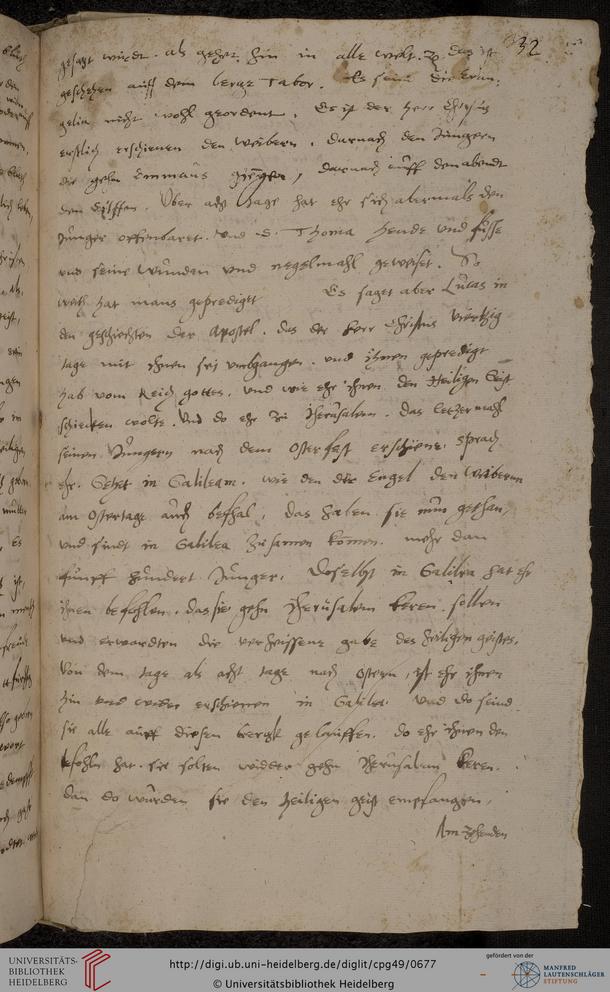 32
gesagt wirdt. als gehet hin in alle welt. das ist
geschehen auff dem berge Tabor. Es seind die Euan,
gelia nicht wohl geordent. Es ist der Herr Christus
erstlich erschienen den weibern, darnach den Jüngern
die gehn Emmaus giengen, darnach auff den abendt
den Eilffen. Über acht tage hat ehr sich abermals den
Jünger offenbaret. und S. Thoma hende und füsse
und seine wunden und negelmahl geweiset. So
weit hat mans geprediget Es saget aber Lucas in
den geschichten der Apostel. das der Herr Christus viertzig
tage mit ihnen sei umbgangen. und ihnen gepredigt
hab vom Reich gottes. und wie ehr ihnen den Heiligen Geist
schicken wolte. Und do ehr zu Jherusalem. das letzermahl
seinen Jüngern nach dem Osterfest erschiene. sprach
ehr. Gehet in Galileam. wie den der Engel den weibern
am Ostertage auch befhal, das haben sie nun gethan,
und sindt in Galilea zusamen komen. mehr dan
fünff hundert Jünger. Doselbst in Galilea hat ehr
ihnen befohlen. das sie gehn Jherusalem keren sollen
und erwardten die verheissene gabe des heiligen geistes.
Von dem tage als acht tage nach Ostern, ist ehr ihnen
hin und wider erschienen in Galilea. Und do seind
sie alle auff diesen bergk gelauffen. do ehr ihnen den
befohln hat. sie solten widder gehn Jherusalem keren.
dan do würden sie den heiligen geist empfangen,
Am zehenden
UNIVERSITÄTS-
BIBLIOTHEK
HEIDELBERG
http://digi.ub.uni-heidelberg.de/diglit/cpg49/0677
© Universitätsbibliothek Heidelberg
gefördert von der
MANFRED
LAUTENSCHLÄGER
STIFTUNG